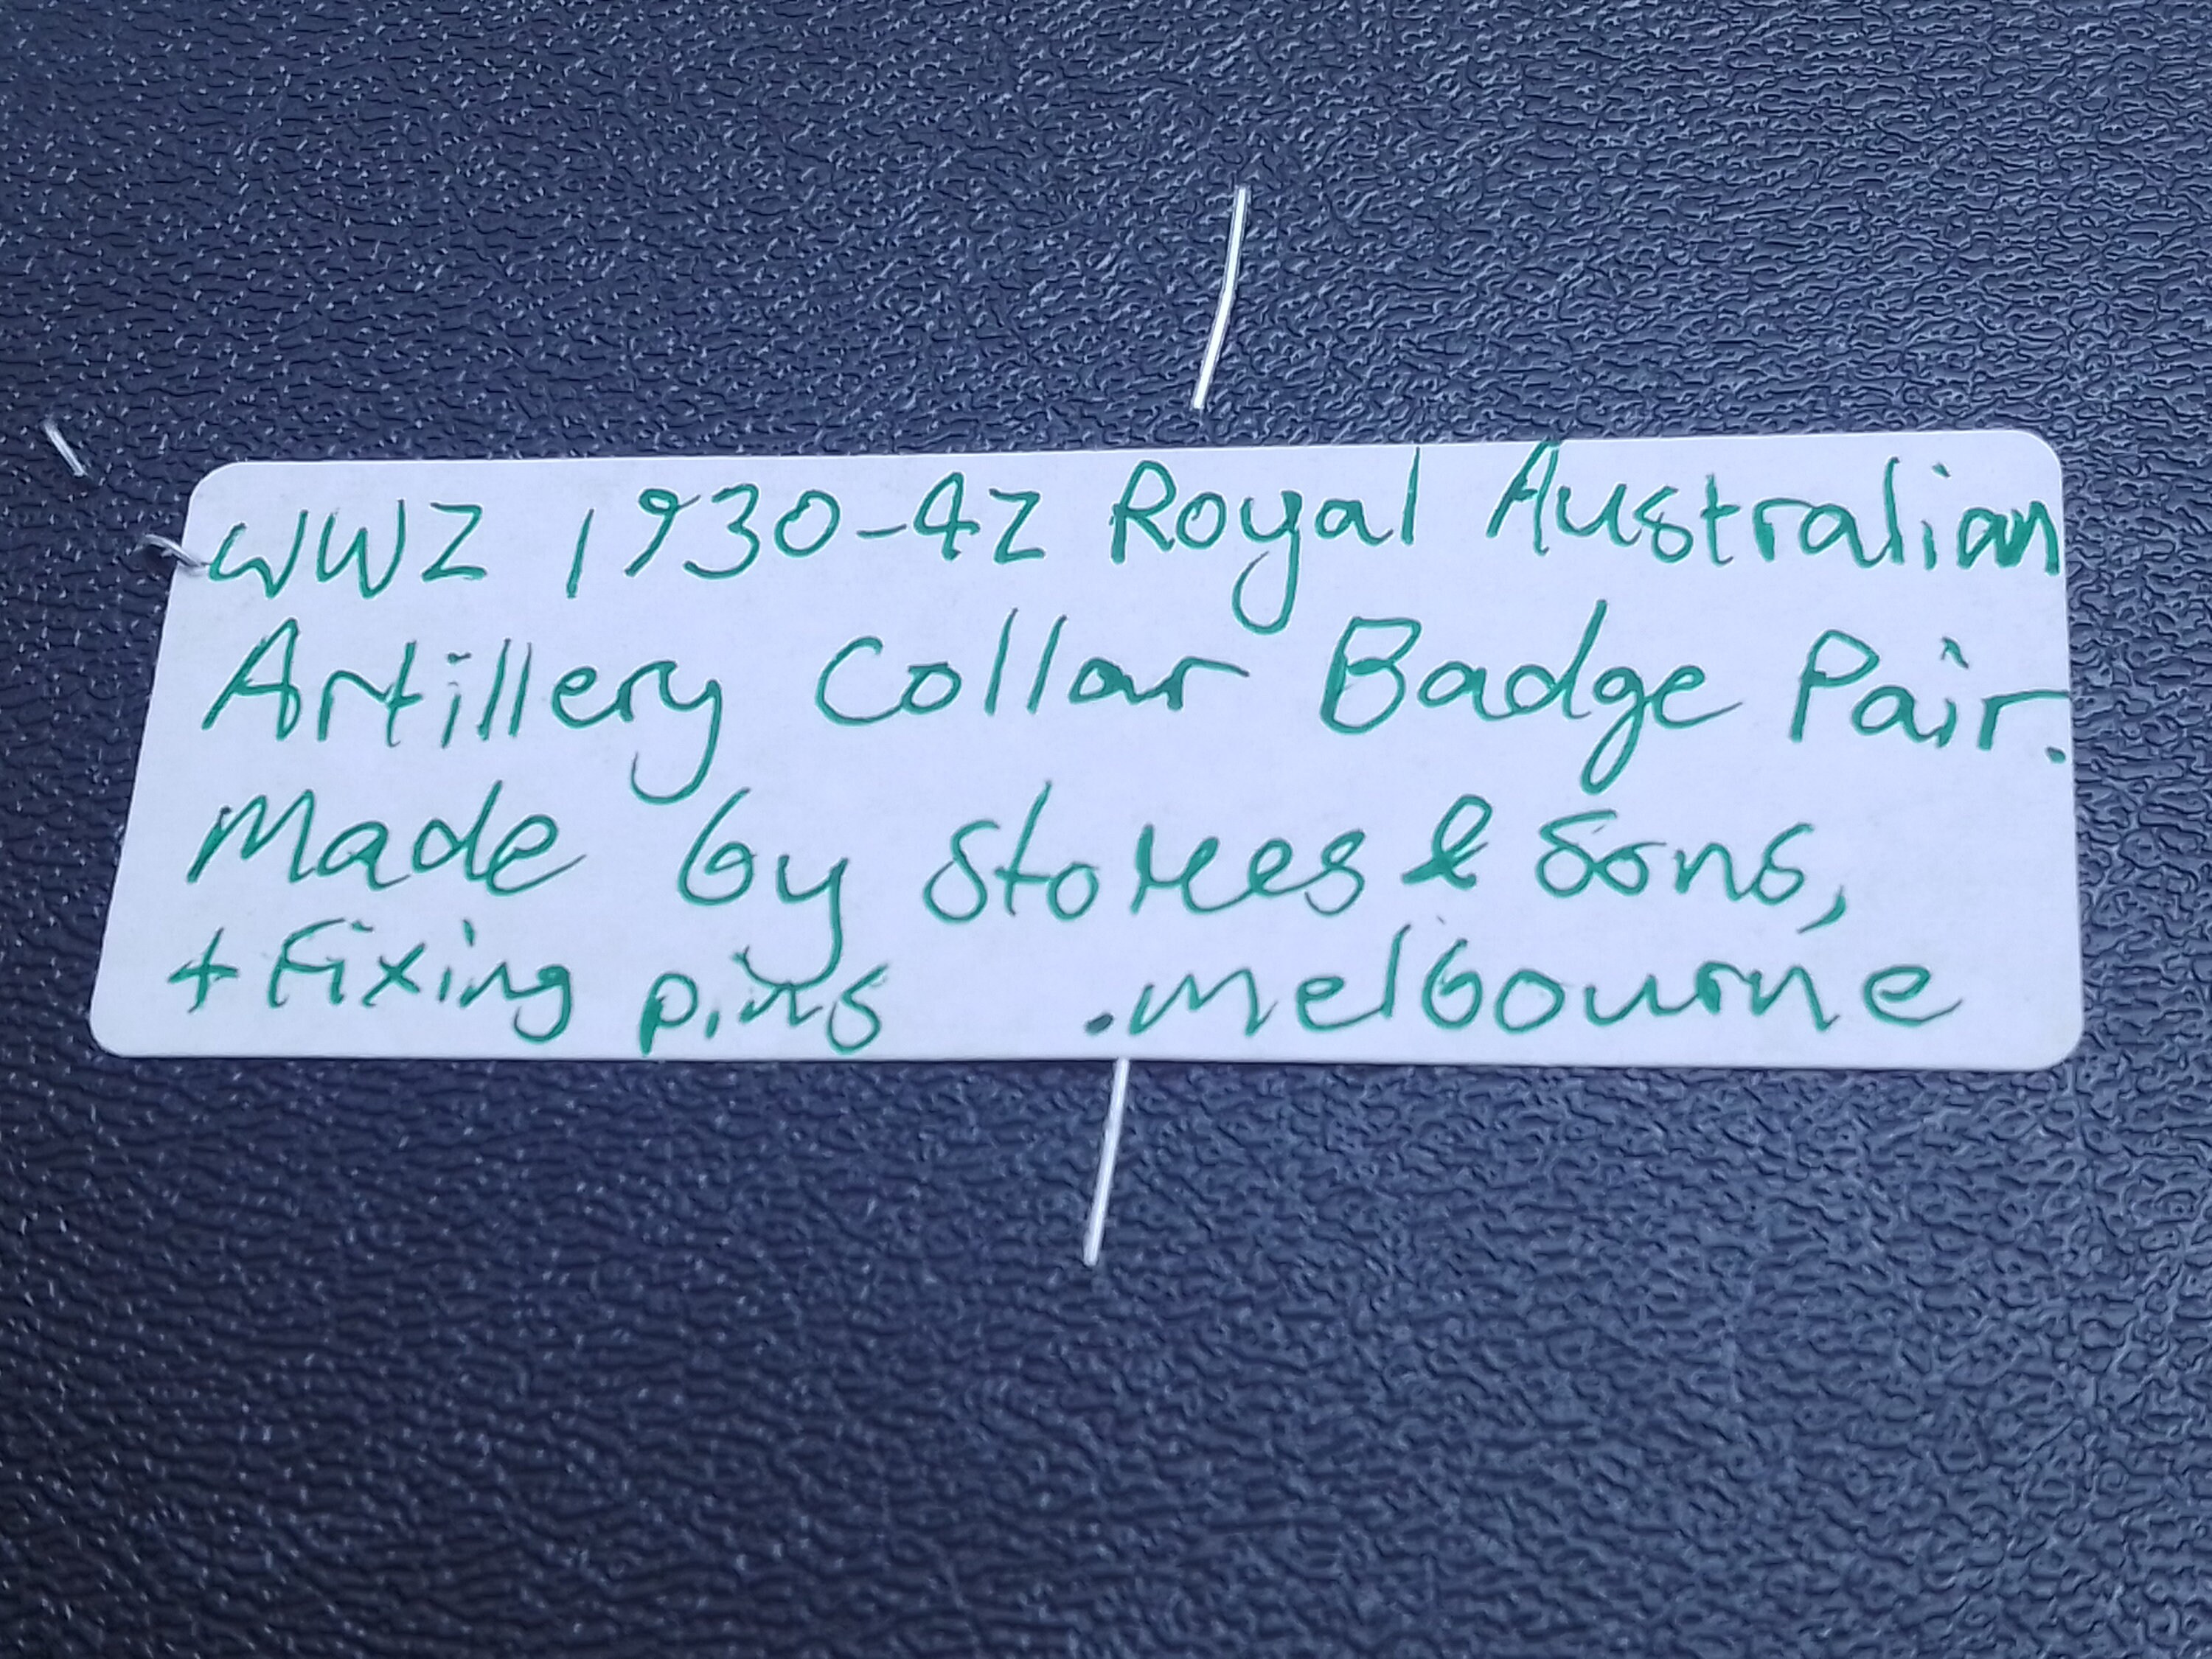 WW2 1930-42 Royal Australian
Artillery Collar Badge Pair.
Made by Stokes & Sons,
+ Fixing pins . Melbourne